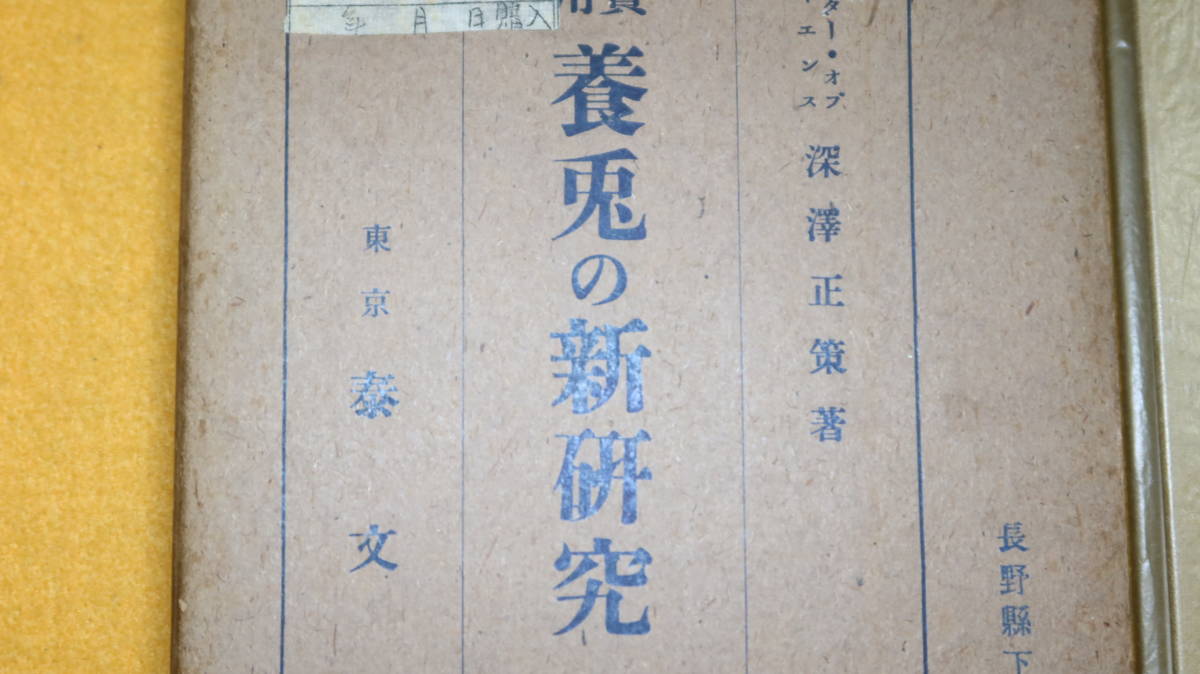 長野縣下
ター・オブ
エンス
深澤正策著
養兎の新研究
東京 泰文
年 月 日購入